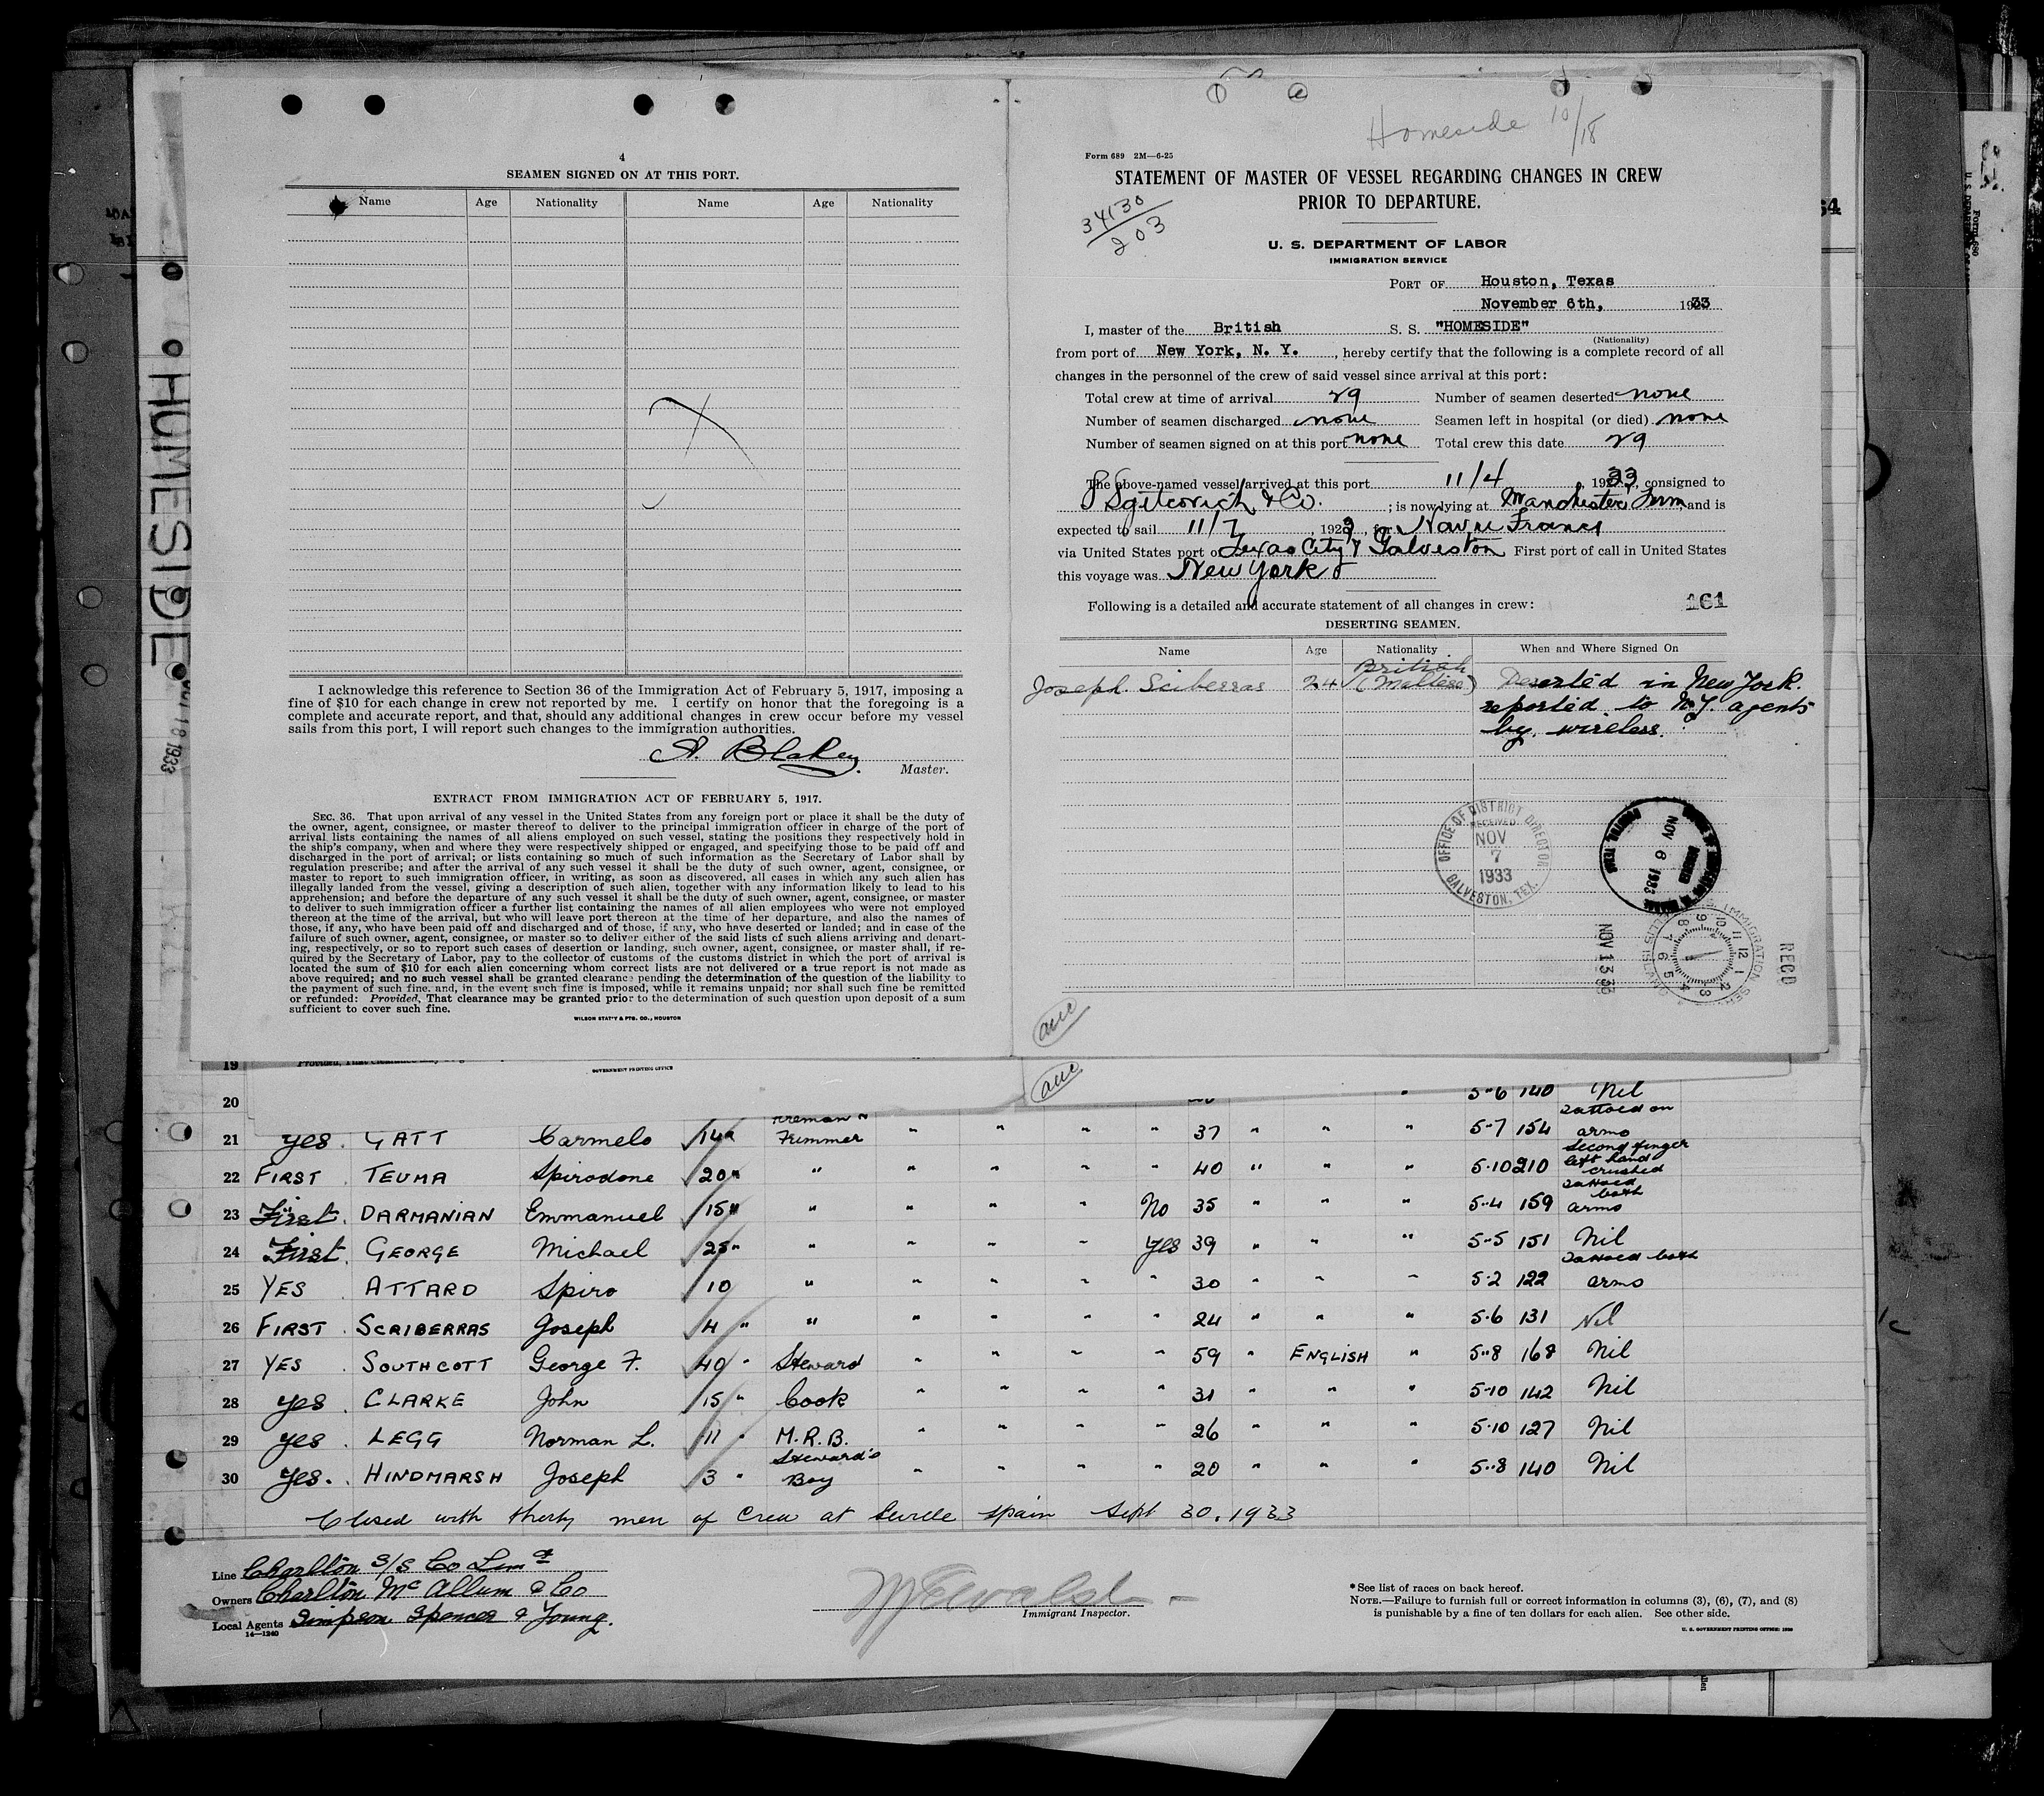 4
SEAMEN SIGNED ON AT THIS PORT.
Name Age Nationality Name Age Nationality
I acknowledge this reference to Section 36 of the Immigration Act of February 5, 1917, imposing a
fine of $10 for each change in crew not reported by me. I certify on honor that the foregoing is a
complete and accurate report, and that, should any additional changes in crew occur before my vessel
sails from this port, I will report such changes to the immigration authorities.
A. Blakey.
Master.
EXTRACT FROM IMMIGRATION ACT OF FEBRUARY 5, 1917.
SEC. 36. That upon arrival of any vessel in the United States from any foreign port or place it shall be the duty of
the owner, agent, consignee, or master thereof to deliver to the principal immigration officer in charge of the port of
arrival lists containing the names of all aliens employed on such vessel, stating the positions they respectively hold in
the ship's company, when and where they were respectively shipped or engaged, and specifying those to be paid off and
discharged in the port of arrival; or lists containing so much of such information as the Secretary of Labor shall by
regulation prescribe; and after the arrival of any such vessel it shall be the duty of such owner, agent, consignee, or
master to report to such immigration officer, in writing, as soon as discovered, all cases in which any such alien has
illegally landed from the vessel, giving a description of such alien, together with any information likely to lead to his
apprehension; and before the departure of any such vessel it shall be the duty of such owner, agent, consignee, or master
to deliver to such immigration officer a further list containing the names of all alien employees who were not employed
thereon at the time of the arrival, but who will leave port thereon at the time of her departure, and also the names of
those, if any, who have been paid off and discharged and of those, if any, who have deserted or landed; and in case of the
failure of such owner, agent, consignee, or master so to deliver either of the said lists of such aliens arriving and depart-
ing, respectively, or so to report such cases of desertion or landing, such owner, agent, consignee, or master shall, if re-
quired by the Secretary of Labor, pay to the collector of customs of the customs district in which the port of arrival is
located the sum of $10 for each alien concerning whom correct lists are not delivered or a true report is not made as
above required; and no such vessel shall be granted clearance pending the determination of the question of the liability to
the payment of such fine, and, in the event such fine is imposed, while it remains unpaid; nor shall such fine be remitted
or refunded: Provided, That clearance may be granted prior to the determination of such question upon deposit of a sum
sufficient to cover such fine.
WILSON STAT'Y & PTG. CO., HOUSTON
HOMESIDE
18 1933
Homeside 10/18
Form 689 2M—6-25
STATEMENT OF MASTER OF VESSEL REGARDING CHANGES IN CREW
PRIOR TO DEPARTURE.
34130
203
U. S. DEPARTMENT OF LABOR
IMMIGRATION SERVICE
PORT OF Houston, Texas
November 6th, 1933
I, master of the British S. S. "HOMESIDE"
(Nationality)
from port of New York, N. Y. , hereby certify that the following is a complete record of all
changes in the personnel of the crew of said vessel since arrival at this port:
Total crew at time of arrival 29 Number of seamen deserted none
Number of seamen discharged none Seamen left in hospital (or died) none
Number of seamen signed on at this port none Total crew this date 29
The above-named vessel arrived at this port 11/4, 1933, consigned to
Sgitcovich & Co. ; is now lying at Manchester Term and is
expected to sail 11/7, 192, for Havre France
via United States port of Texas City & Galveston First port of call in United States
this voyage was New York
Following is a detailed and accurate statement of all changes in crew: 161
DESERTING SEAMEN.
Name Age Nationality When and Where Signed On
Joseph Sciberras 24 British (Maltese) Deserted in New York.
reported to N.Y. agents
by wireless.
OFFICE OF DISTRICT DIRECTOR
RECEIVED
NOV
7
1933
GALVESTON, TEX.
NOV 6 1933
NOV 13 33
IMMIGRATION
RECD
19
GOVERNMENT PRINTING OFFICE
20 " 5-6 140 Nil
21 yes. GATT Carmelo 14 " Fireman & Trimmer " " " " 37 " " " 5-7 154 Tattoed on arms
22 FIRST TEUMA Spirodone 20 " " " " " " 40 " " " 5-10 210 Second finger left hand crushed
23 First. DARMANIAN Emmanuel 15 " " " " " No 35 " " " 5-4 159 Tattoed both arms
24 First. GEORGE Michael 25 " " " " " yes 39 " " " 5-5 151 Nil
25 YES ATTARD Spiro 10 " " " " " 30 " " " 5-2 122 Tattoed both arms
26 FIRST. SCRIBERRAS Joseph 4 " " " " " " 24 " " " 5-6 131 Nil
27 YES SOUTHCOTT George F. 40 " Steward " " " " 59 " ENGLISH " 5-8 168 Nil
28 yes. CLARKE John 15 " Cook " " " " 31 " " " 5-10 142 Nil
29 yes. LEGG Norman L. 11 " M.R.B. " " " " 26 " " " 5-10 127 Nil
30 Yes. HINDMARSH Joseph 3 " Steward's Boy " " " " 20 " " " 5-8 140 Nil
Closed with thirty men of Crew at Seville Spain Sept 30. 1933
Line Charlton S/S Co Lmd
Owners Charlton Mc Allum & Co
Local Agents Simpson Spence & Young.
14—1240
Immigrant Inspector.
* See list of races on back hereof.
NOTE.—Failure to furnish full or correct information in columns (3), (6), (7), and (8)
is punishable by a fine of ten dollars for each alien. See other side.